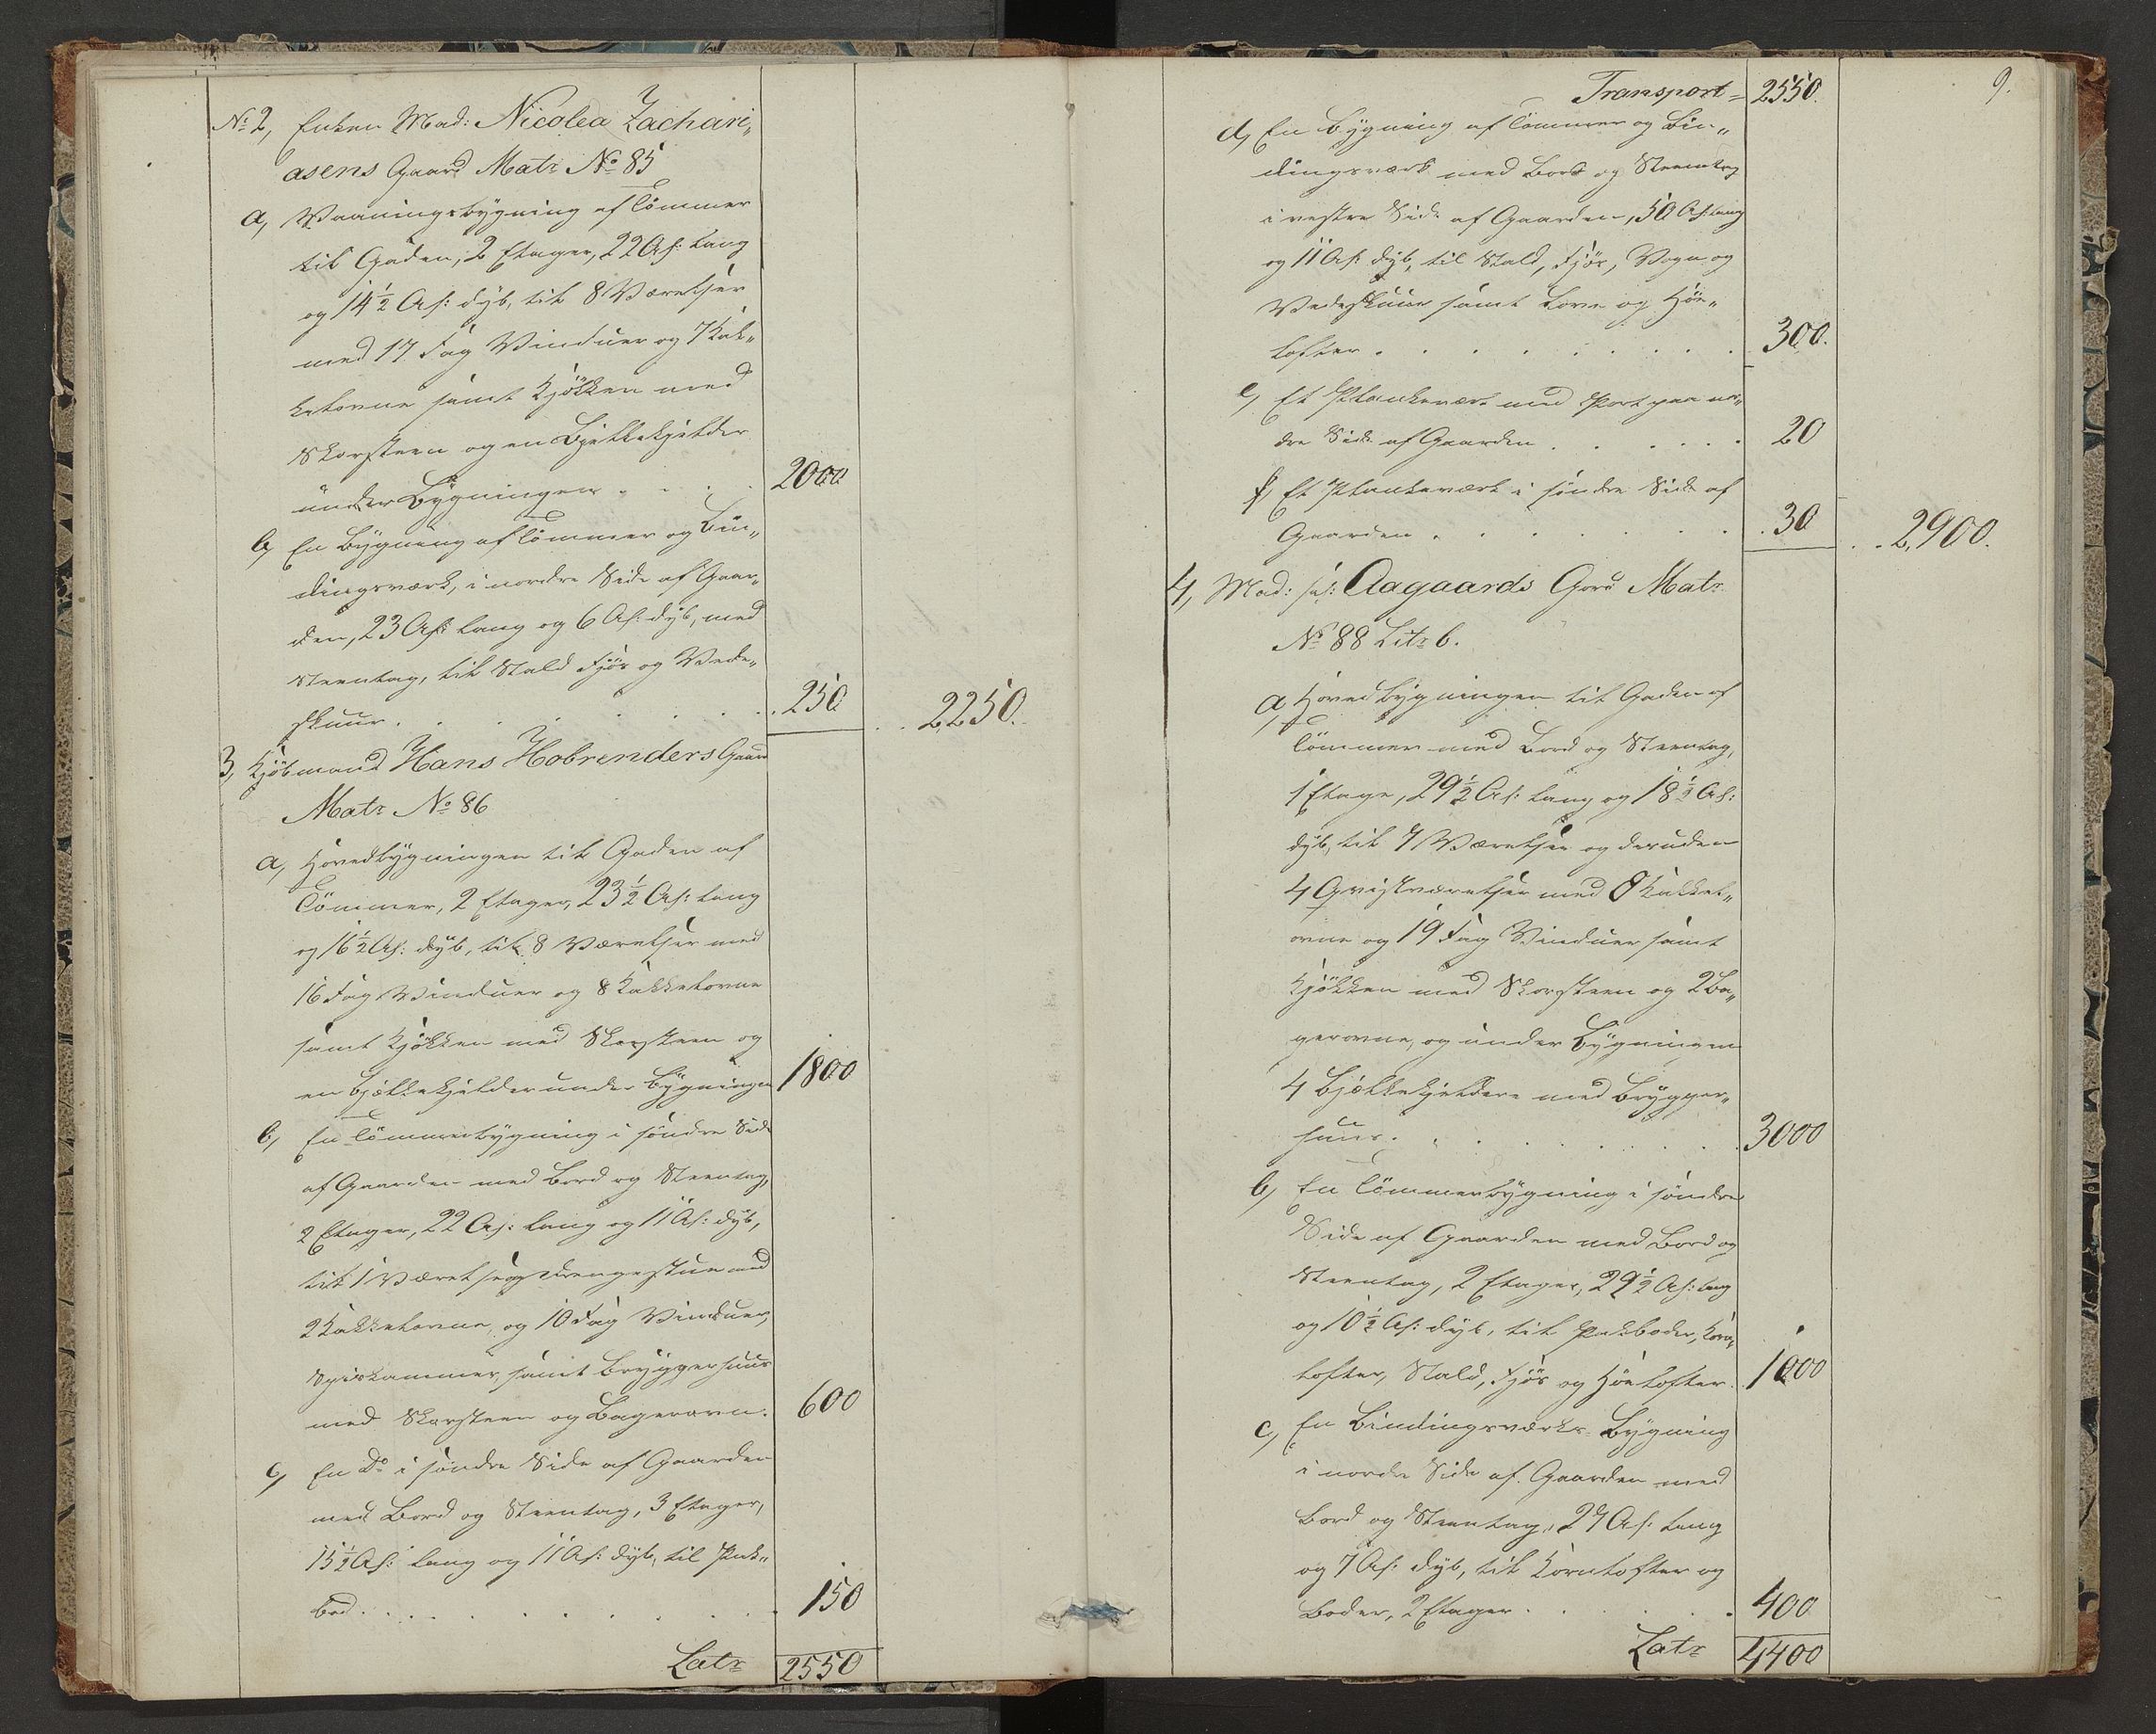 No 2, Enken Mad: Nicolea Zachari„
asens Gaard Matr No 85
a, Vaaningsbygning af Tömmer
til Gaden, 2 Etager, 22 Al: lang
og 14 1/2 Al: dyb, til 8 Værelser
med 17 Fag Vinduer og 7 Kak„
kelovne samt Kjökken med
Skorsteen og en Bjelkekjelder
under Bygningen . . . . 2000
b, En Bygning af Tömmer og Bin„
dingsværk, i nordre Side af Gaar„
den, 23 Al: lang og 6 Al: dyb, med
Steentag, til Stald Fjös og Vede„
skuur . . . . . . . 250 . . 2250.
3, Kjöbmand Hans Hobrenders Gaard
Matr No 86
a, Hovedbygningen til Gaden af
Tömmer, 2 Etager, 23 1/2 Al: lang
og 16 1/2 Al: dyb, til 8 Værelser med
16 Fag Vinduer og 8 Kakkelovne
samt Kjökken med Skorsteen og
en Bjelkekjelder under Bygningen 1800
b, En Tömmerbygning i söndre Side
af Gaarden med Bord og Steentag,
2 Etager, 22 Al: lang og 11 Al: dyb,
til 1 Værelse og Drengestue med
2 Kakkelovne, og 10 Fag Vinduer,
Spiskammer, samt Bryggerhuus
med Skorsteen og Bagerovn. 600
c, En Do i söndre Side af Gaarden
med Bord og Steentag, 3 Etager,
15 1/2 Al: lang og 11 Al: dyb, til Pak„
bod . . . . . . . . 150
Latr 2550
9.
Transport = 2550.
d, En Bygning af Tömmer og Bin„
dingsværk med Bord og Steentag
i vestre Side af Gaarden, 50 Al: lang
og 11 Al: dyb, til Stald, Fjös, Vogn og
Vedeskuur samt Love og Höe„
lofter . . . . . . . . . 300.
e, Et Plankeværk med Port paa nor„
dre Side af Gaarden . . . . . . 20
f, Et Plankeværk i söndre Side af
Gaarden . . . . . . . 30 . . 2,900.
4, Mad: sal: Aagaards Gard Matr
No 88 Litr b.
a, Hovedbygningen til Gaden af
Tömmer med Bord og Steentag,
1 Etage, 29 1/2 Al: lang og 18 1/2 Al:
dyb, til 7 Værelser og desuden
4 Qvistværelser med 8 Kakkel„
ovne og 19 Fag Vinduer samt
Kjökken med Skorsteen og 2 Ba„
gerovne, og under Bygningen
4 Bjelkekjeldere med Brygger„
huus . . . . . . . . . 3000
b, En Tömmerbygning i söndre
Side af Gaarden med Bord og
Steentag, 2 Etager, 29 1/2 Al: lang
og 10 1/2 Al: dyb, til Pakboder, Korn„
lofter, Stald, Fjös og Höelofter. 1000
c, En Bindingsværks-Bygning
i nordre Side af Gaarden med
Bord og Steentag, 27 Al: lang
og 7 Al: dyb, til Kornlofter og
Boder, 2 Etager . . . . . 400
Latr 4400